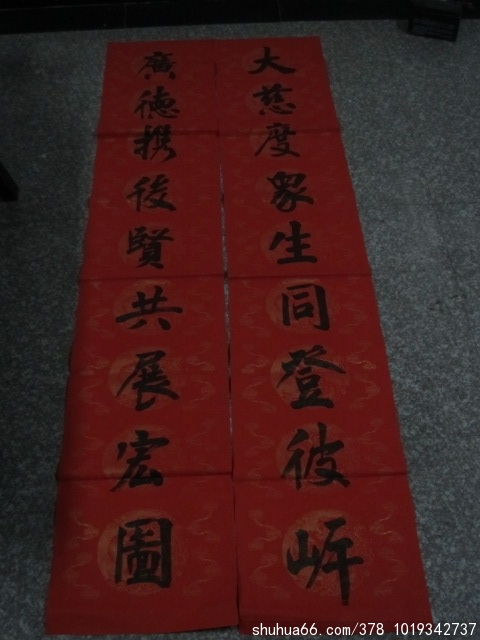 大慈度眾生同登彼岍
廣德携後賢共展宏圖
shuhua66.com/378_1019342737